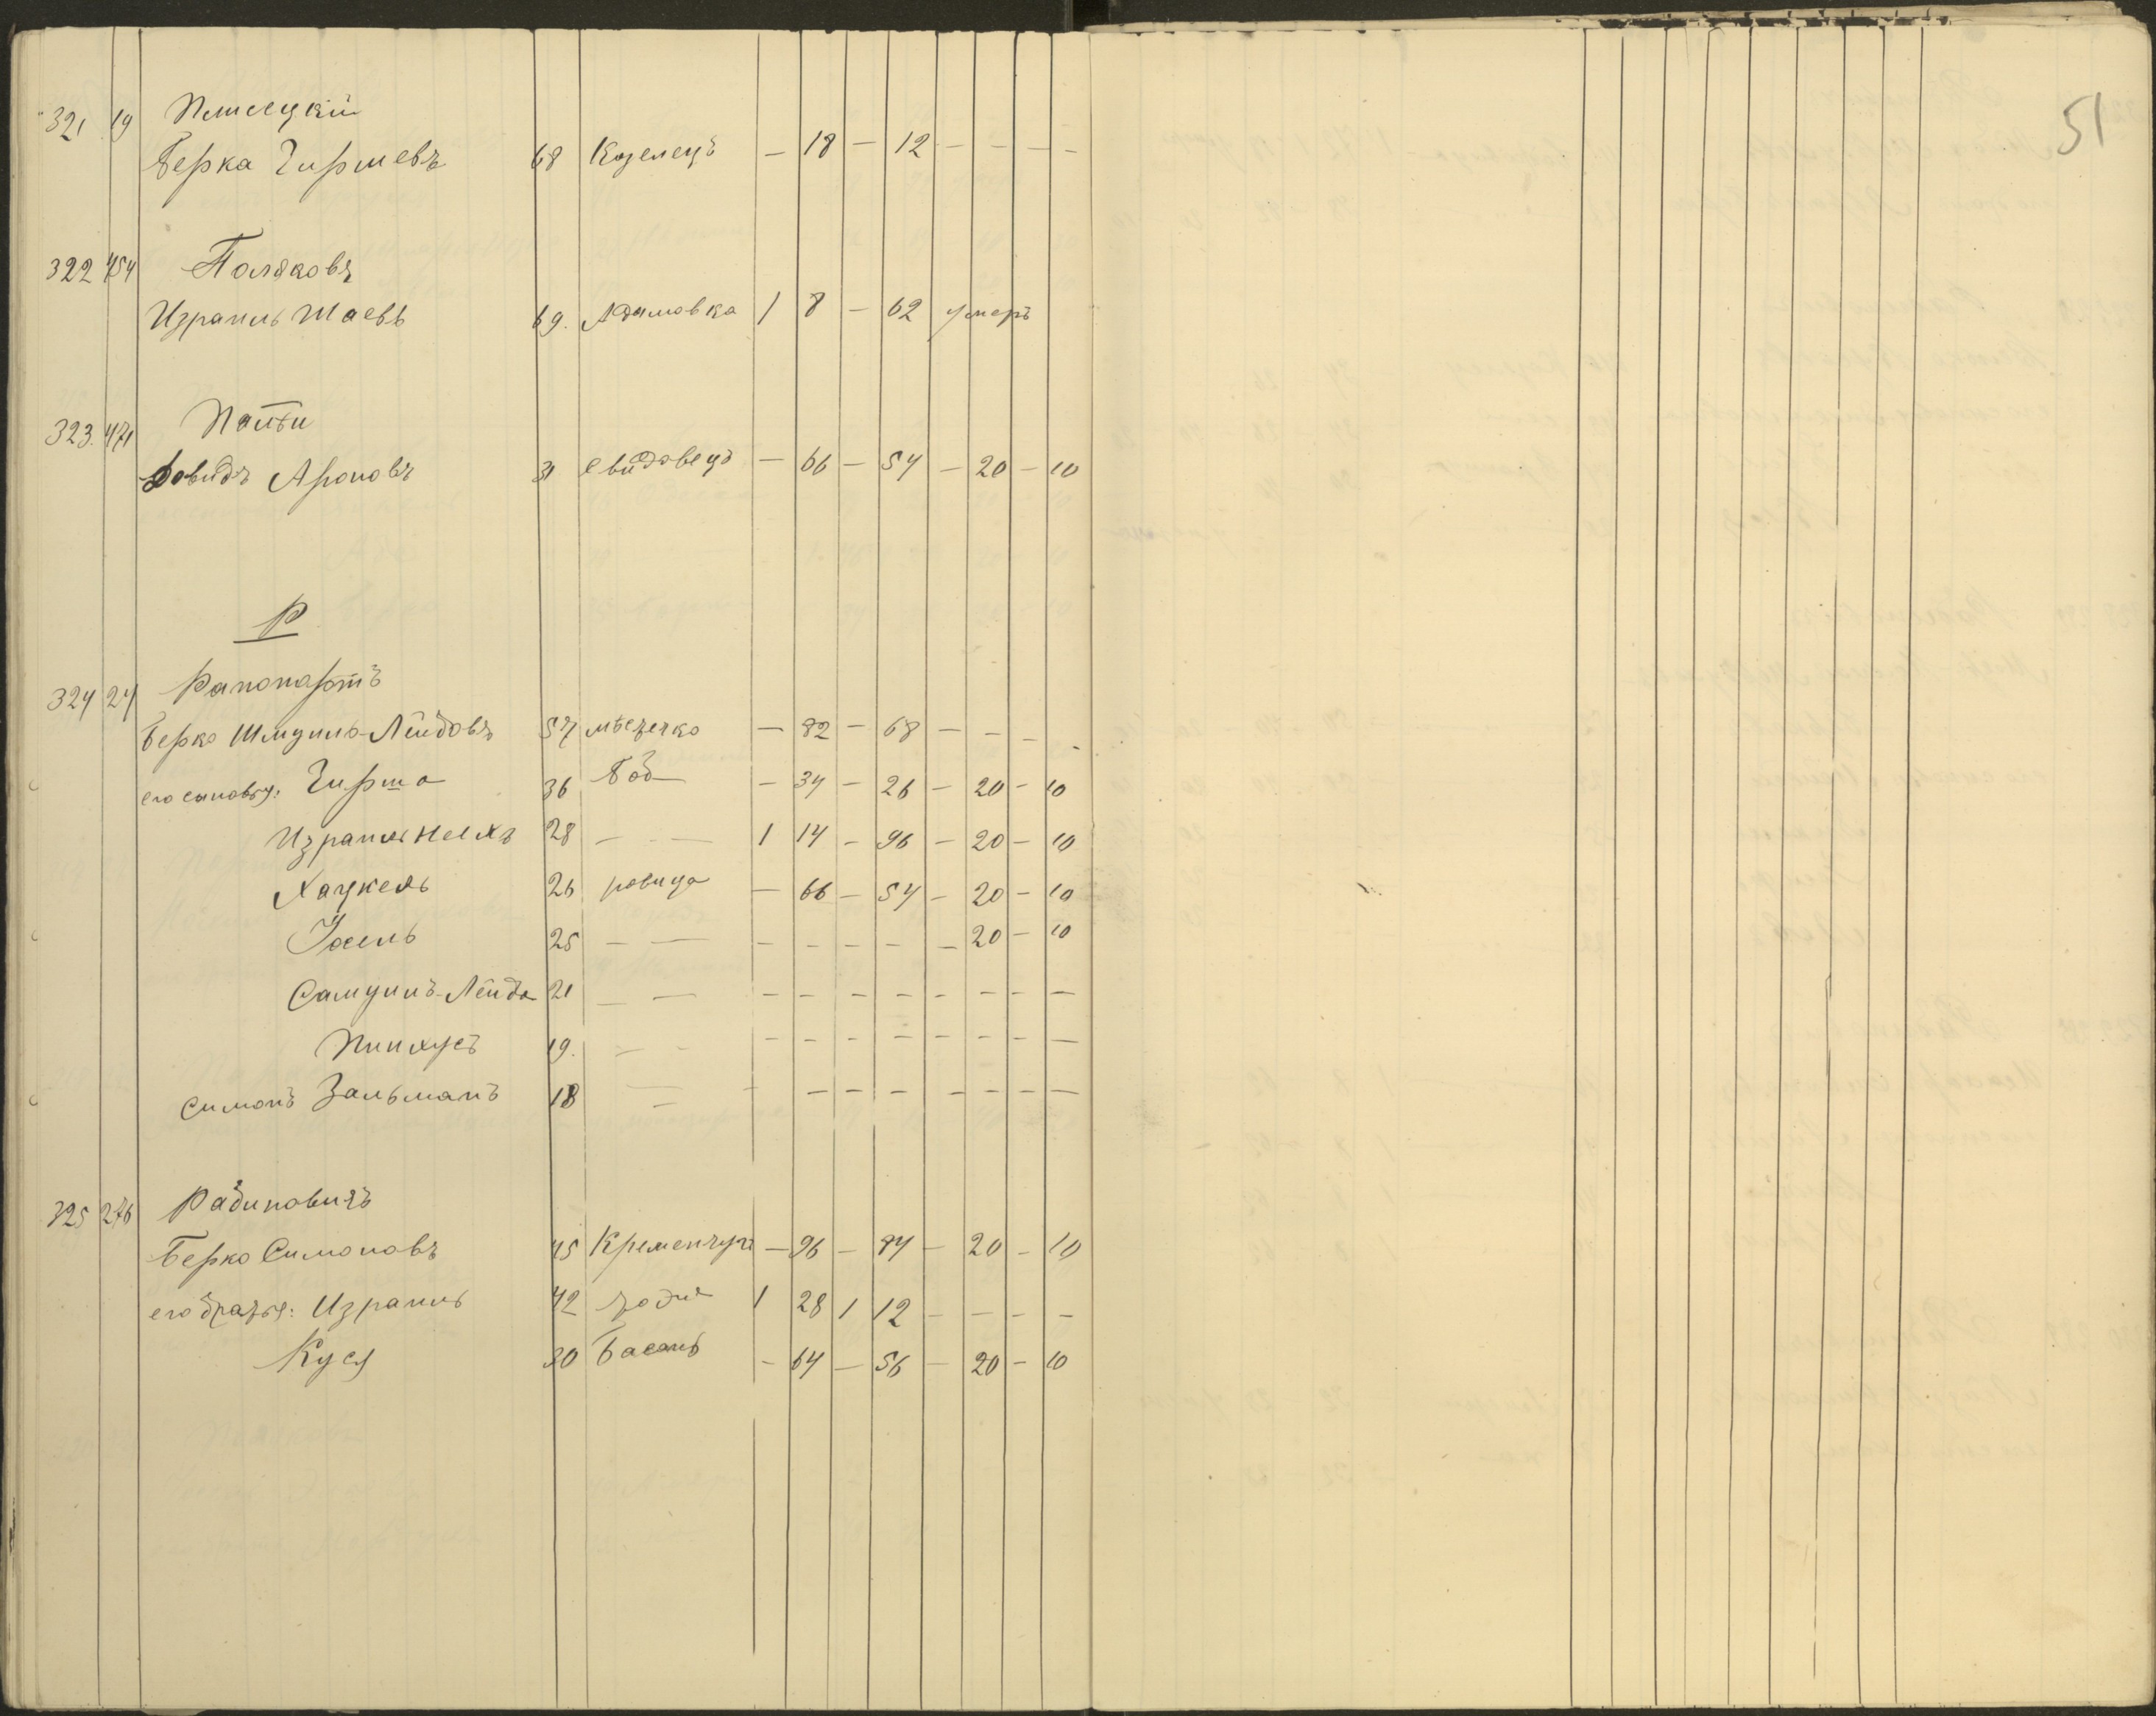 51
321 19 Плисецкій
Берка Гиршевъ 68 Козелецъ — 18 — 12 — — — —
322 454 Поляковъ
Израиль Шаевъ 69. Адамовка 1 8 — 62 умеръ
323. 471
Довидъ Ароновъ 31 Свидовецъ — 66 — 54 — 20 — 10
Р
324 24 Рапопортъ
Берко Шмуиль-Лейбовъ 57 мѣстечко — 82 — 68 — — — -
его сыновья: Гирша 36 Боб — 34 — 26 — 20 — 10
Израиль 28 — — 1 14 — 96 — 20 — 10
Хацкель 26 ровица — 66 — 54 — 20 — 10
Іосель 25 — — — — — — — 20 — 10
Самуилъ-Лейба 21 — — — — — — — — — —
Пинхусъ 19. — — — — — — — — — —
Симонъ Зальманъ 18 — — — — — — — — — —
325 276 Рабиновичъ
Берко Симоновъ 45 Кременчугъ — 96 — 84 — 20 — 10
его братья: Израиль 42 1 28 1 12 — — — —
Куся 30 Басань — 64 — 56 — 20 — 10